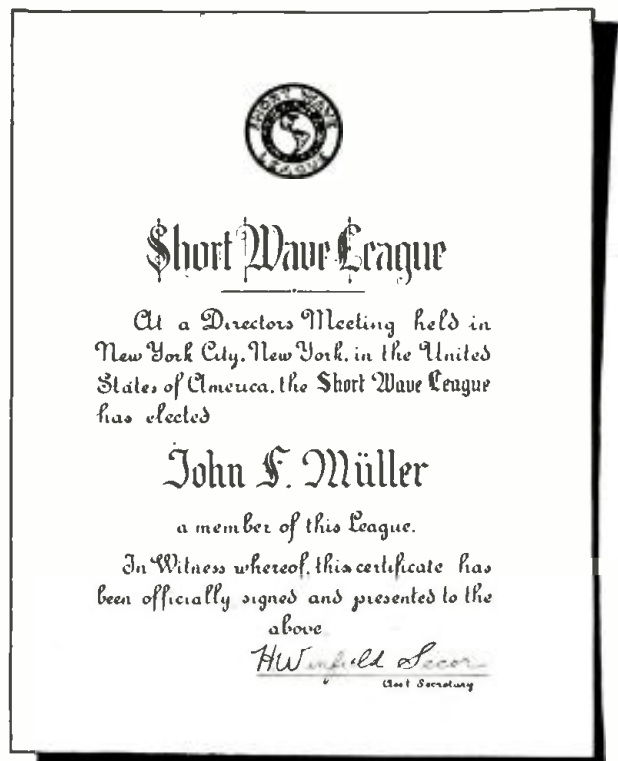 SHORT WAVE
LEAGUE
Short Wave League
At a Directors Meeting held in
New York City, New York, in the United
States of America, the Short Wave League
has elected
John F. Müller
a member of this League.
In Witness whereof, this certificate has
been officially signed and presented to the
above
HWinfield Secor
Asst Secretary